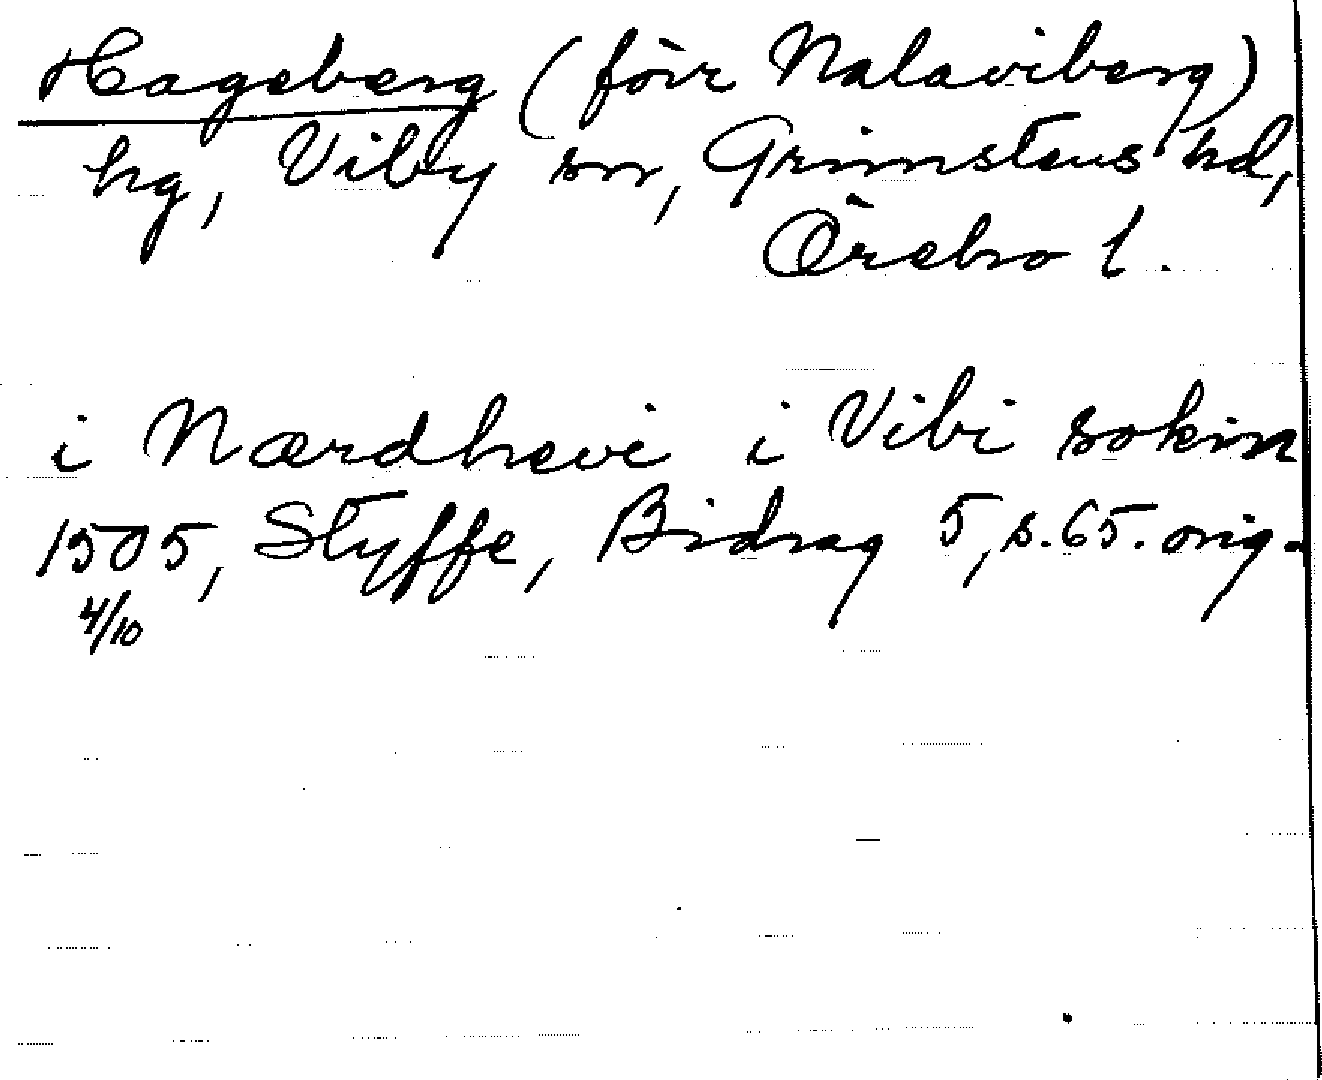 Hageberg (förr Nalaviberg)
hg, Viby sn, Grimstens hd,
Örebro l.
i Nærdhevi i Vibi sokin
1505, Styffe, Bidrag 5, s. 65. orig.
4/10